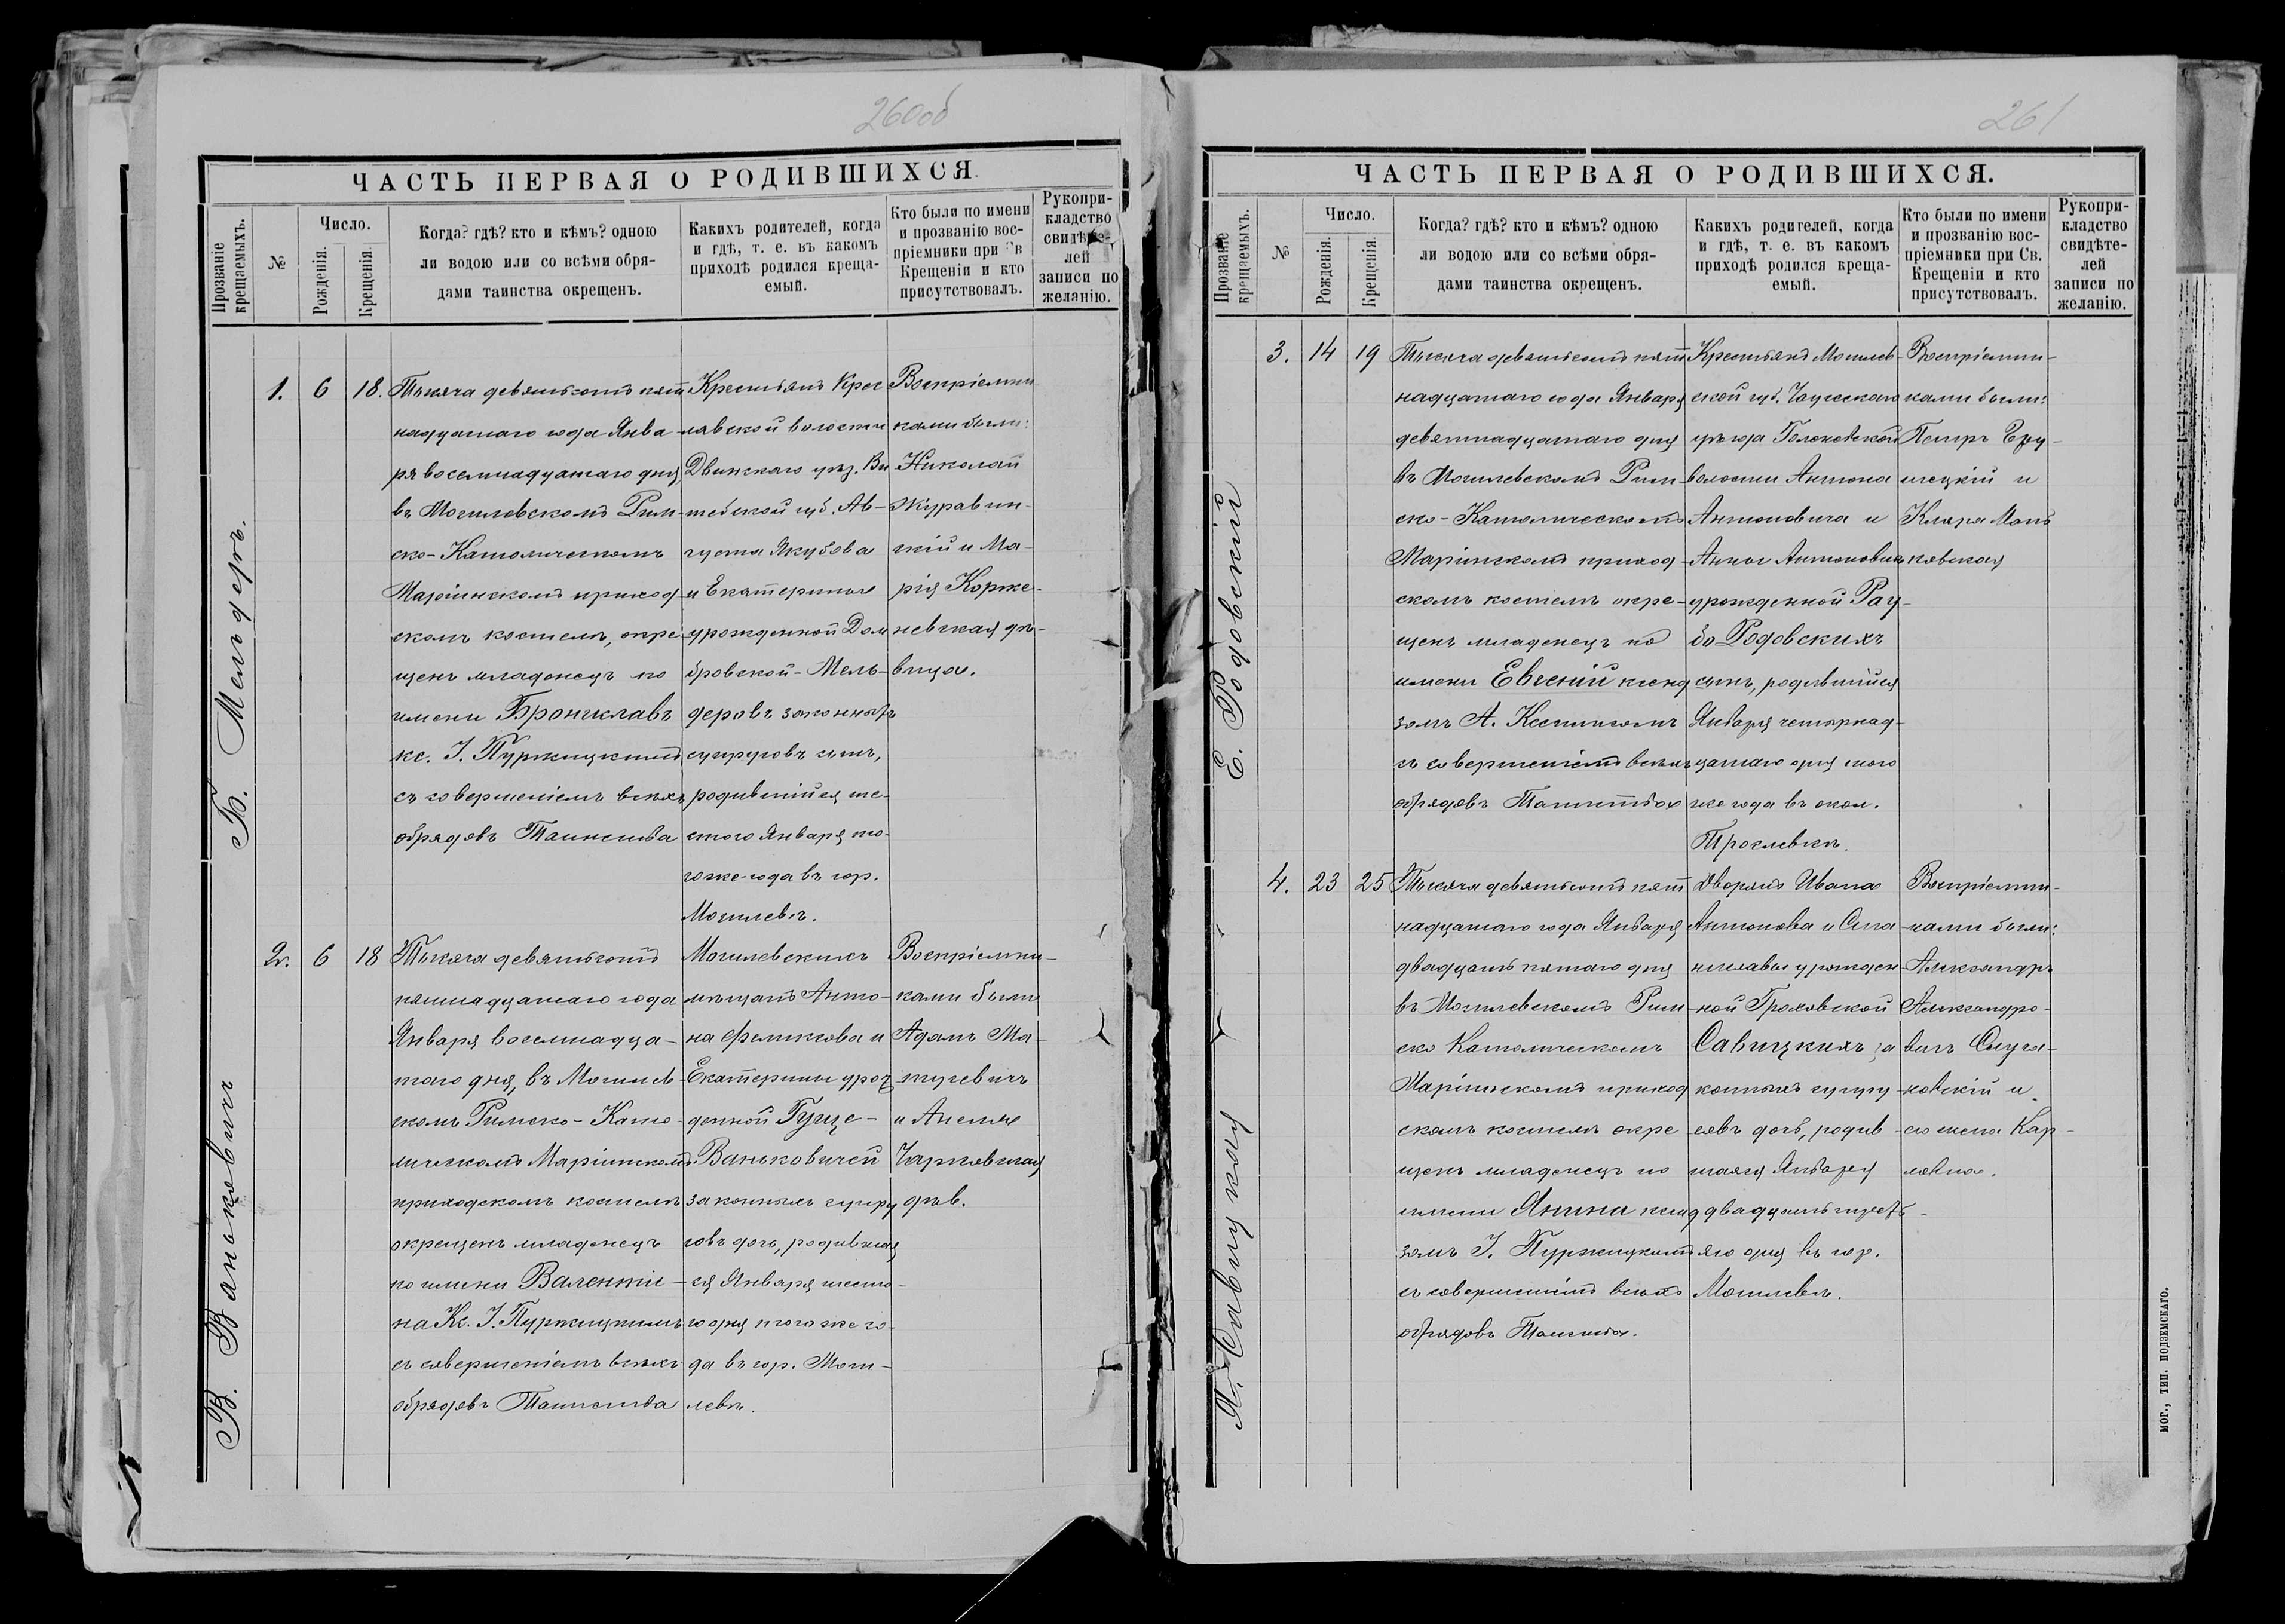 260об
ЧАСТЬ ПЕРВАЯ О РОДИВШИХСЯ.
Прозваніе крещаемыхъ.
№
Число.
Рожденія.
Крещенія.
Когда? гдѣ? кто и кѣмъ? одною
ли водою или со всѣми обря-
дами таинства окрещенъ.
Каихъ родителей, когда
и гдѣ, т. е. въ какомъ
приходѣ родился креща-
емый.
Кто были по имени
и прозванію вос-
пріемники при Св
Крещеніи и кто
присутствовалъ.
Рукопри-
кладство
свидѣте-
лей
записи по
желанію.
Б. Мельдеръ.
1. 6 18.
Тысяча девятьсотъ пят
надцатаго года Янва-
ря восемнадцатаго дня
въ Могилевскомъ Рим-
ско-Католическомъ
Маріинскомъ приход-
скомъ костелѣ, окре
щенъ младенецъ по
имени Брониславъ
кс. І. Пуржицкимъ
съ совершеніемъ всѣхъ
обрядовъ Таинства
Крестьянъ Крес
лавской волости
Двинскаго уѣз. Ви
тебской губ. Ав-
густа Якубова
и Екатерины
урожденной Дом
бровской-Мель-
деровъ законныхъ
супруговъ сынъ,
родившійся ше-
стого Января то-
гоже года въ гор.
Могилевѣ.
Воспріемни
ками были:
Николай
Журавин-
скій и Ма-
рія Корже-
невская дѣ-
вица.
В. Ваньковичъ
2. 6 18
Тысяча девятьсотъ
пятнадцатаго года
Января восемнадца-
таго дня, въ Могилев-
скомъ Римско-Като-
лическомъ Маріинскомъ
приходскомъ костелѣ
окрещенъ младенецъ
по имени Валенти-
на Кс. І. Пуржицкимъ
съ совершеніемъ всѣхъ
обрядовъ Таинства
Могилевскихъ
мѣщанъ Анто-
на Феликсова и
Екатерины урож
денной
Ваньковичей
законныхъ супру
говъ дочь, родившая
ся Января шесто-
го дня того же го-
да въ гор. Моги-
левѣ.
Воспріемни-
ками были
Адамъ Ма-
тусевичъ
и Анеля
Чарневская
дѣв.
261
ЧАСТЬ ПЕРВАЯ О РОДИВШИХСЯ.
Прозваніе крещаемыхъ.
№
Число.
Рожденія.
Крещенія.
Когда? гдѣ? кто и кѣмъ? одною
ли водою или со всѣми обря-
дами таинства окрещенъ.
Какихъ родителей, когда
и гдѣ, т. е. въ какомъ
приходѣ родился креща-
емый.
Кто были по имени
и прозванію вос-
пріемники при Св.
Крещеніи и кто
присутствовалъ.
Рукопри-
кладство
свидѣте-
лей
записи по
желанію.
Е. Родовскій
3. 14 19
Тысяча девятьсотъ пят
надцатаго года Января
девятнадцатаго дня
въ Могилевскомъ Рим
ско-Католическомъ
Маріинскомъ приход
скомъ костелѣ окре-
щенъ младенецъ по
имени Евгеній ксенд
зомъ А. Кестисомъ
съ совершеніемъ всѣхъ
обрядовъ Таинства
Крестьянъ Могилев-
ской губ. Чаусскаго
уѣзда
волости Антона
Антоновича и
Анны Антоновны
урожденной
Родовскихъ
сынъ, родившійся
Января четырнад-
цатаго дня того
же года въ окол.
Воспріемни-
ками были:
Петръ
и
Клара
4. 23 25
Я. Савицкая
Тысяча девятьсотъ пят
надцатаго года Января
двадцать пятаго дня
въ Могилевскомъ Рим
ско Католическомъ
Маріинскомъ приход
скомъ костелѣ окре
щенъ младенецъ по
имени Янина ксенд
зомъ І. Пуржицкимъ
съ совершеніемъ всѣхъ
обрядовъ Таинства.
Дворянъ Ивана
Антонова и Ста
ниславы урожден
ной Гроховской
Савицкихъ за
конныхъ супру
говъ дочь, родив
шаяся Января
двадцать треть-
яго дня въ гор.
Могилевѣ.
Воспріемни-
ками были:
Александръ
Александро-
вичъ
и
его жена Кар-
МОГ., ТИП. ПОДЗЕМСКАГО.